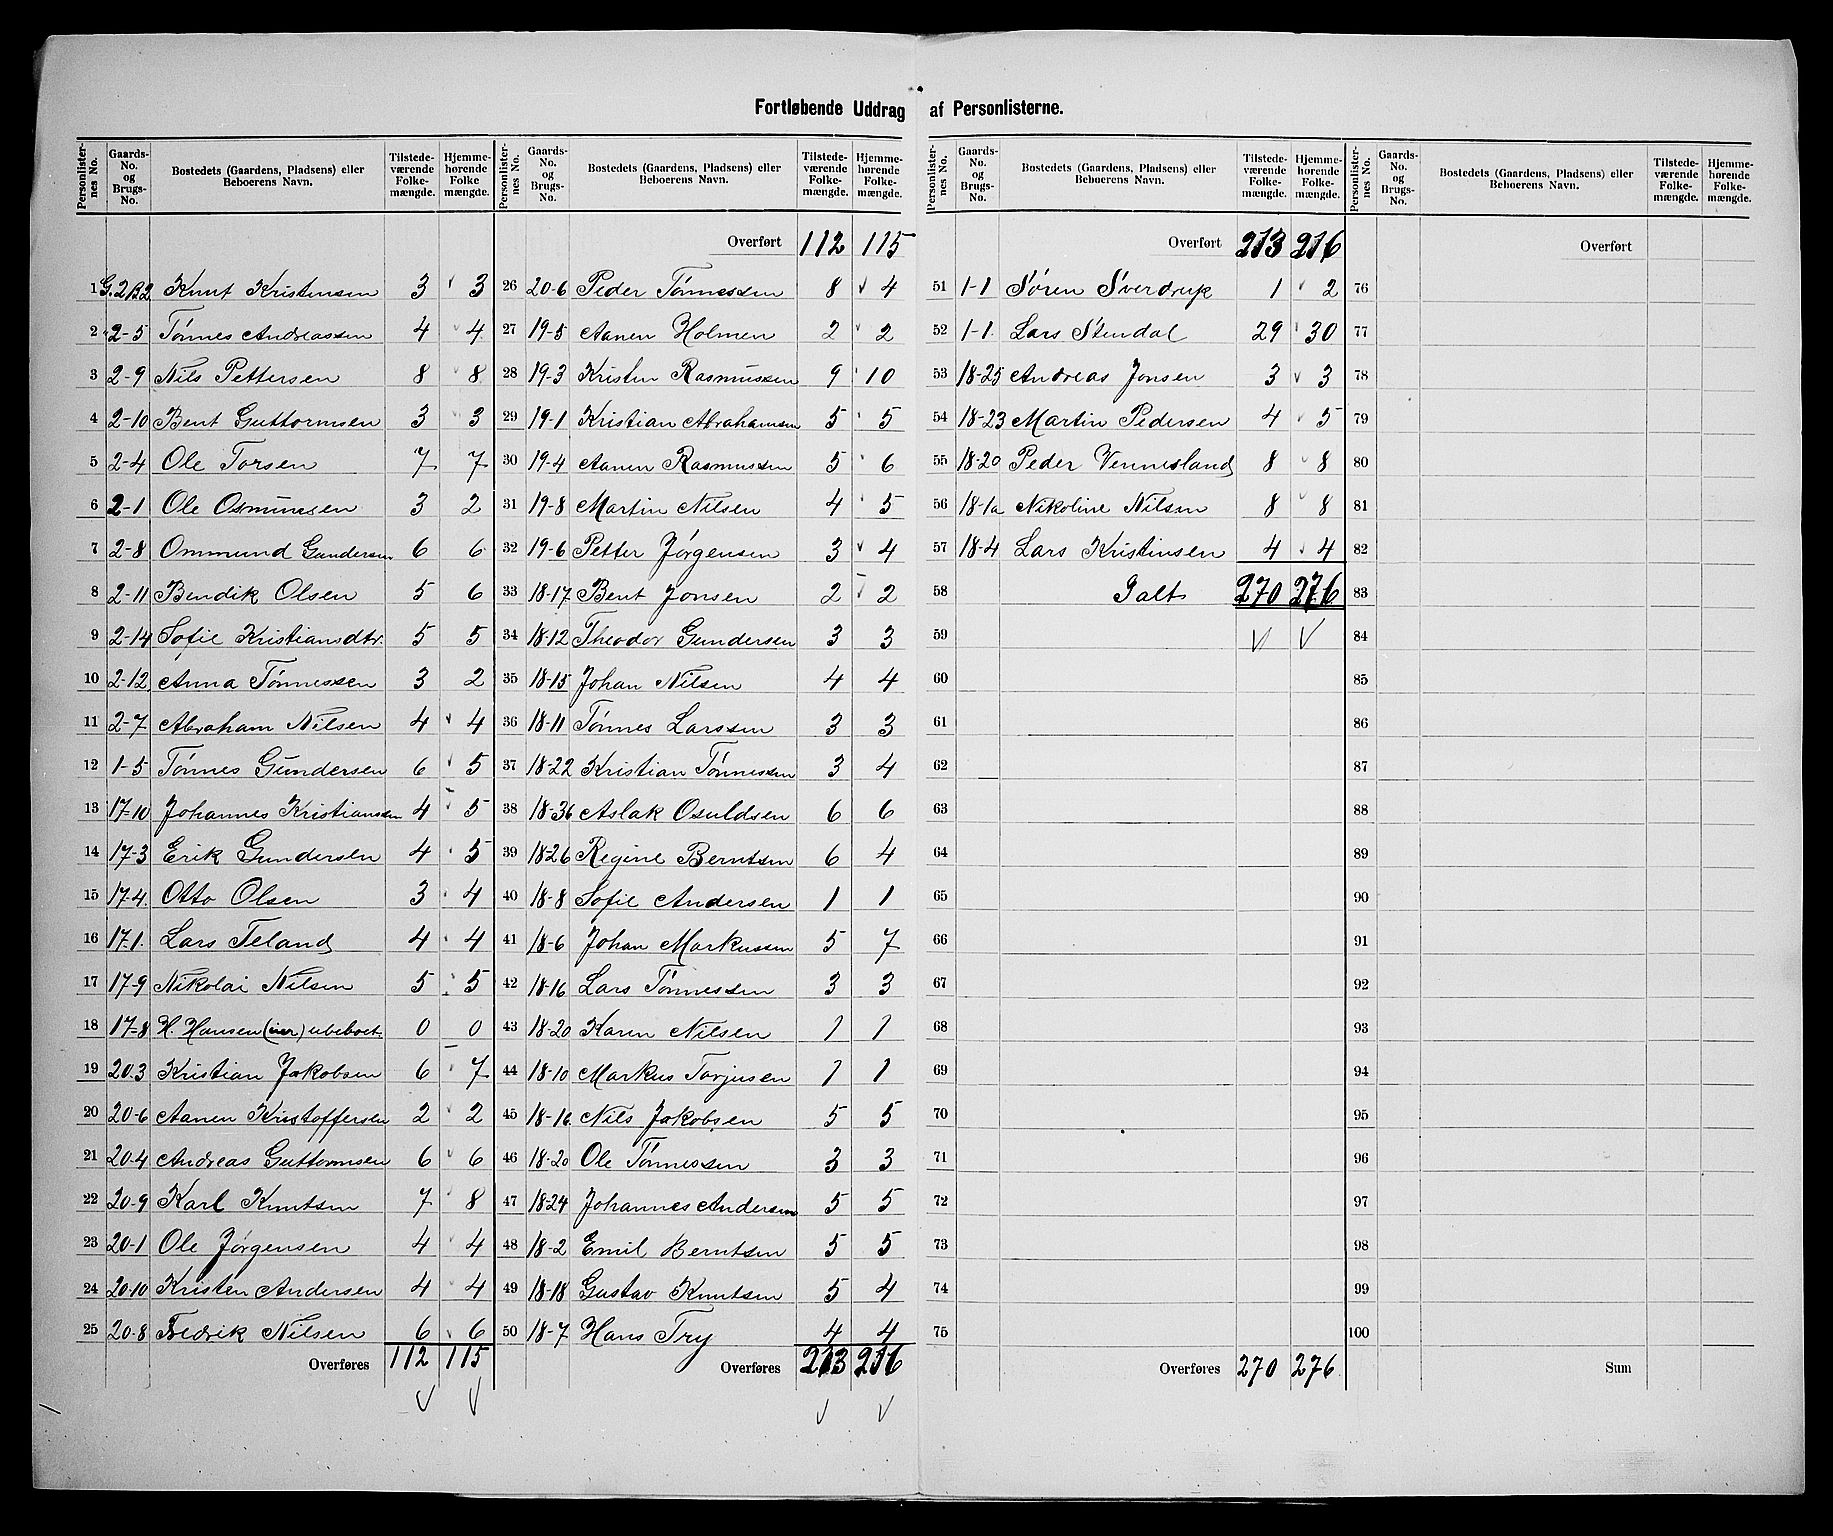 Fortløbende Uddrag af Personlisterne.
Personlister-nes No. Gaards-No. og Brugs-No. Bostedets (Gaardens, Pladsens) eller Beboerens Navn. Tilstede-værende Folke-mængde. Hjemme-hørende Folke mængde.
1 G.2 B2 Knut Kristensen 3 3
2 2-5 Tønnes Andreassen 4 4
3 2-9 Nils Pettersen 8 8
4 2-10 Bent Guttormsen 3 3
5 2-4 Ole Torsen 7 7
6 2-1 Ole Osmunsen 3 2
7 2-8 Ommund Gundersen 6 6
8 2-11 Bendik Olsen 5 6
9 2-14 Sofie Kristiansdtr. 5 5
10 2-12 Anna Tønnessen 3 2
11 2-7 Abraham Nilsen 4 4
12 1-5 Tønnes Gundersen 6 5
13 17-10 Johannes Kristiansen 4 5
14 17-3 Erik Gundersen 4 5
15 17-4. Otto Olsen 3 4
16 17-1. Lars Teland 4 4
17 17-9 Nikolai Nilsen 5 5
18 17-8 H. Hansen ubeboet 0 0
19 20-3 Kristian Jakobsen 6 7
20 20-6 Aanen Kristoffersen 2 2
21 20-4 Andreas Guttormsen 6 6
22 20-9 Karl Knutsen 7 8
23 20-1 Ole Jørgensen 4 4
24 20-10 Kristen Andersen 4 4
25 20-8 Fredrik Nilsen 6 6
Overføres 112 115
Personlister-nes No. Gaards-No. og Brugs-No. Bostedets (Gaardens, Pladsens) eller Beboerens Navn. Tilstede-værende Folke-mængde. Hjemme-hørende Folke-mængde.
Overført 112 115
26 20-6 Peder Tønnessen 8 4
27 19-5 Aanen Holmen 2 2
28 19-3 Kristen Rasmussen 9 10
29 19-1 Kristian Abrahamsen 5 5
30 19-4 Aanen Rasmussen 5 6
31 19-8 Martin Nilsen 4 5
32 19-6 Petter Jørgensen 3 4
33 18-17 Bent Jonsen 2 2
34 18-12 Theodor Gundersen 3 3
35 18-15 Johan Nilsen 4 4
36 18-11 Tønnes Larssen 3 3
37 18-22 Kristian Tønnessen 3 4
38 18-36 Aslak Osuldsen 6 6
39 18-26 Regine Berntsen 6 4
40 18-8 Sofie Andersen 1 1
41 18-6 Johan Markussen 5 7
42 18-16 Lars Tønnessen 3 3
43 18-20 Karen Nilsen 1 1
44 18-10 Markus Torjusen 1 1
45 18-16. Nils Jakobsen 5 5
46 18-20 Ole Tønnessen 3 3
47 18-24 Johannes Andersen 5 5
48 18-2 Emil Berntsen 5 5
49 18-18 Gustav Knutsen 5 4
50 18-7 Hans Try 4 4
Overføres 213 216
Bostedets (Gaardens, Pladsens) eller Beboerens Navn. Personlister-nes No. Gaards-No. og Brugs-No. Tilstede-værende Folke-mængde. Hjemme-hørende Folke-mængde.
Overført 213 216
51 1-1 Søren Sverdrup 1 2
52 1-1. Lars Stendal 29 30
53 18-25 Andreas Jonsen 3 3
54 18-23 Martin Pedersen 4 5
55 18-20 Peder Vennesland 8 8
56 18-1a Nikoline Nilsen 8 8
57 18-4 Lars Kristinsen 4 4
58 Ialt 270 276
59
60
61
62
63
64
65
66
67
68
69
70
71
72
73
74
75
Overføres 270 276
Personlister-nes No. Gaards-No. og Brugs-No. Bostedets (Gaardens, Pladsens) eller Beboerens Navn. Tilstede-værende Folke-mængde. Hjemme-hørende Folke-mængde.
Overført
76
77
78
79
80
81
82
83
84
85
86
87
88
89
90
91
92
93
94
95
96
97
98
99
100
Sum